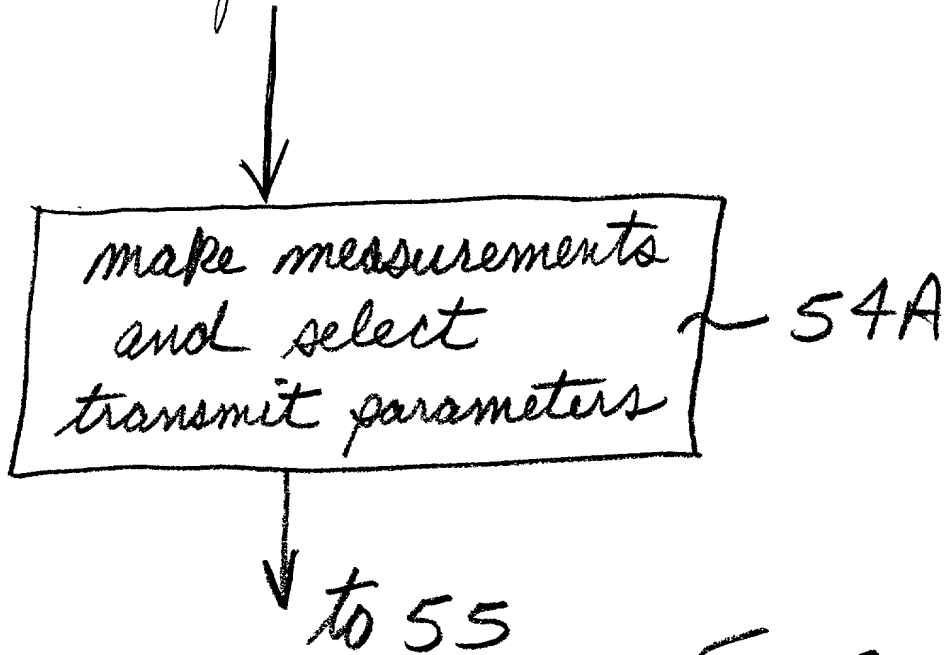 make measurements
and select
transmit parameters
54A
to 55